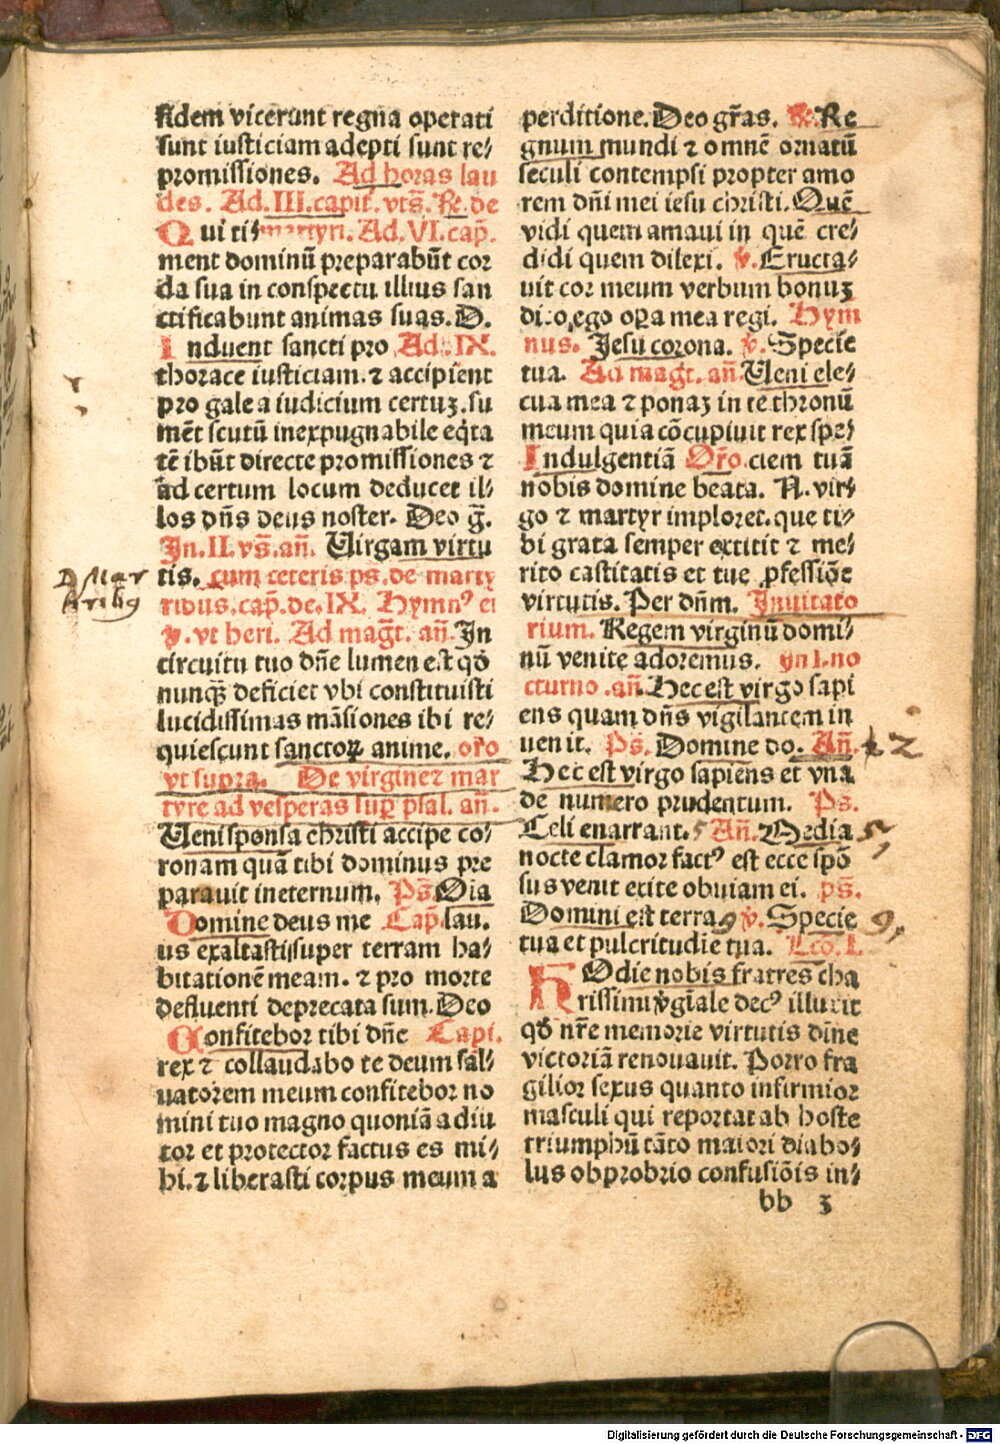 fidem vicerunt regna operati
sunt iusticiam adepti sunt re⸗
promissiones. Ad horas lau
des. Ad. III. capit. vts̄. R̄. de
Qui ti⸗ martyri. Ad. VI. cap̄.
ment dominū preparabūt cor
da sua in conspectu illius san
ctificabunt animas suas. D.
Induent sancti pro Ad. IX.
thorace iusticiam. ⁊ accipient
pro galea iudicium certuꝫ. su
mēt scutū inexpugnabile eq̄ta
tē ibūt directe promissiones ⁊
ad certum locum deducet il⸗
los dn̄s deus noster. Deo ḡ.
In. II. vs̄. an̄. Uirgam virtu
tis. cum ceteris ps. de marty
ribus. cap̄. de. IX. Hymnꝰ ei
v̄. vt heri. Ad maḡt. an̄. In
circuitu tuo dn̄e lumen est qd̄
nunqꝫ deficiet vbi constituisti
lucidissimas māsiones ibi re⸗
quiescunt sanctoꝝ anime. oro
vt supra. De virgine ⁊ mar
tyre ad vesperas sup̄ psal. an̄.
Ueni sponsa christi accipe co⸗
ronam quā tibi dominus pre
parauit in eternum. Ps̄. Dia
Domine deus me Cap̄. lau.
us exaltasti super terram ha⸗
bitationē meam. ⁊ pro morte
defluenti deprecata sum. Deo
Confitebor tibi dn̄e Capi.
rex ⁊ collaudabo te deum sal⸗
uatorem meum confitebor no
mini tuo magno quoniā adiu
tor et protector factus es mi⸗
hi. ⁊ liberasti corpus meum a
D Mar
perditione. Deo gr̄as. R̄. Re
gnum mundi ⁊ omnē ornatū
seculi contempsi propter amo
rem dn̄i mei iesu christi. Quē
vidi quem amaui in quē cre⸗
didi quem dilexi. v̄. Eructa⸗
uit cor meum verbum bonuꝫ
dico ego oꝑa mea regi. Hym
nus. Jesu corona. v̄. Specie
tua. Ad maḡt. an̄. Ueni ele⸗
cta mea ⁊ ponaꝫ in te thronū
meum quia cōcupiuit rex spe⸗
Indulgentiā Or̄o. ciem tuā
nobis domine beata. N. vir⸗
go ⁊ martyr imploret. que ti⸗
bi grata semper extitit ⁊ me⸗
rito castitatis et tue ꝓfessiōe
virtutis. Per dn̄m. Inuitato
rium. Regem virginū domi⸗
nū venite adoremus. In I. no
cturno. an̄. Hec est virgo sapi
ens quam dn̄s vigilantem in
uenit. Ps̄. Domine do. An̄. 2
Hec est virgo sapiens et vna
de numero prudentum. Ps.
Celi enarrant. An̄. Media
nocte clamor factꝰ est ecce spō
sus venit exite obuiam ei. ps̄.
Domini est terra v̄. Specie
tua et pulcritudie tua. Lco. I.
HOdie nobis fratres cha
rissimi v̄gīale decꝰ illuxit
qd̄ nr̄e memorie virtutis dīne
victoriā renouauit. Porro fra
gilior sexus quanto infirmior
masculi qui reportat ab hoste
triumphū tāto maiori diabo⸗
lus obprobrio confusiōis in⸗
bb 3
Digitalisierung gefördert durch die Deutsche Forschungsgemeinschaft - DFG